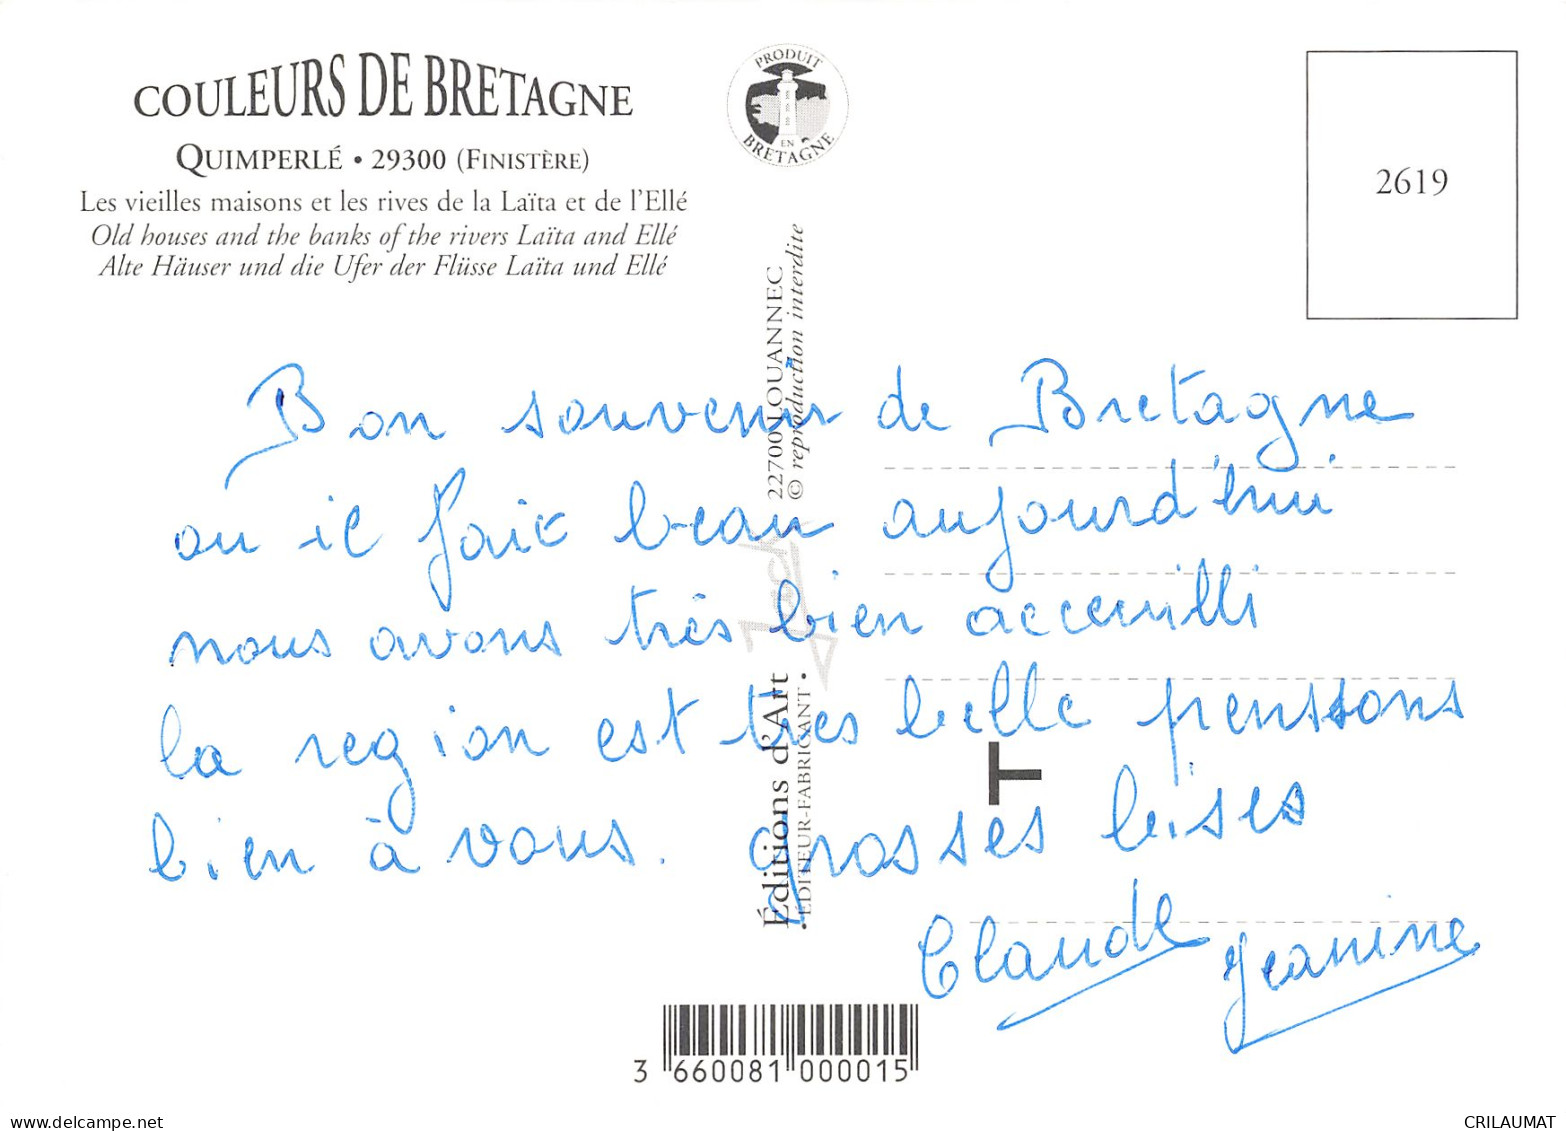 COULEURS DE BRETAGNE
QUIMPERLÉ • 29300 (FINISTÈRE)
Les vieilles maisons et les rives de la Laïta et de l'Ellé
Old houses and the banks of the rivers Laïta and Ellé
Alte Häuser und die Ufer der Flüsse Laïta und Ellé
PRODUIT
EN
BRETAGNE
2619
Éditions d'Art Jack 22700 LOUANNEC
• ÉDITEUR-FABRICANT • © reproduction interdite
T
Bon souvenir de Bretagne
ou il fait beau aujourd'hui
nous avons très bien acceuilli
la region est très belle penssons
bien à vous. grosses bises
Claude Jeanine
3 660081 000015
www.delcampe.net
CRILAUMAT